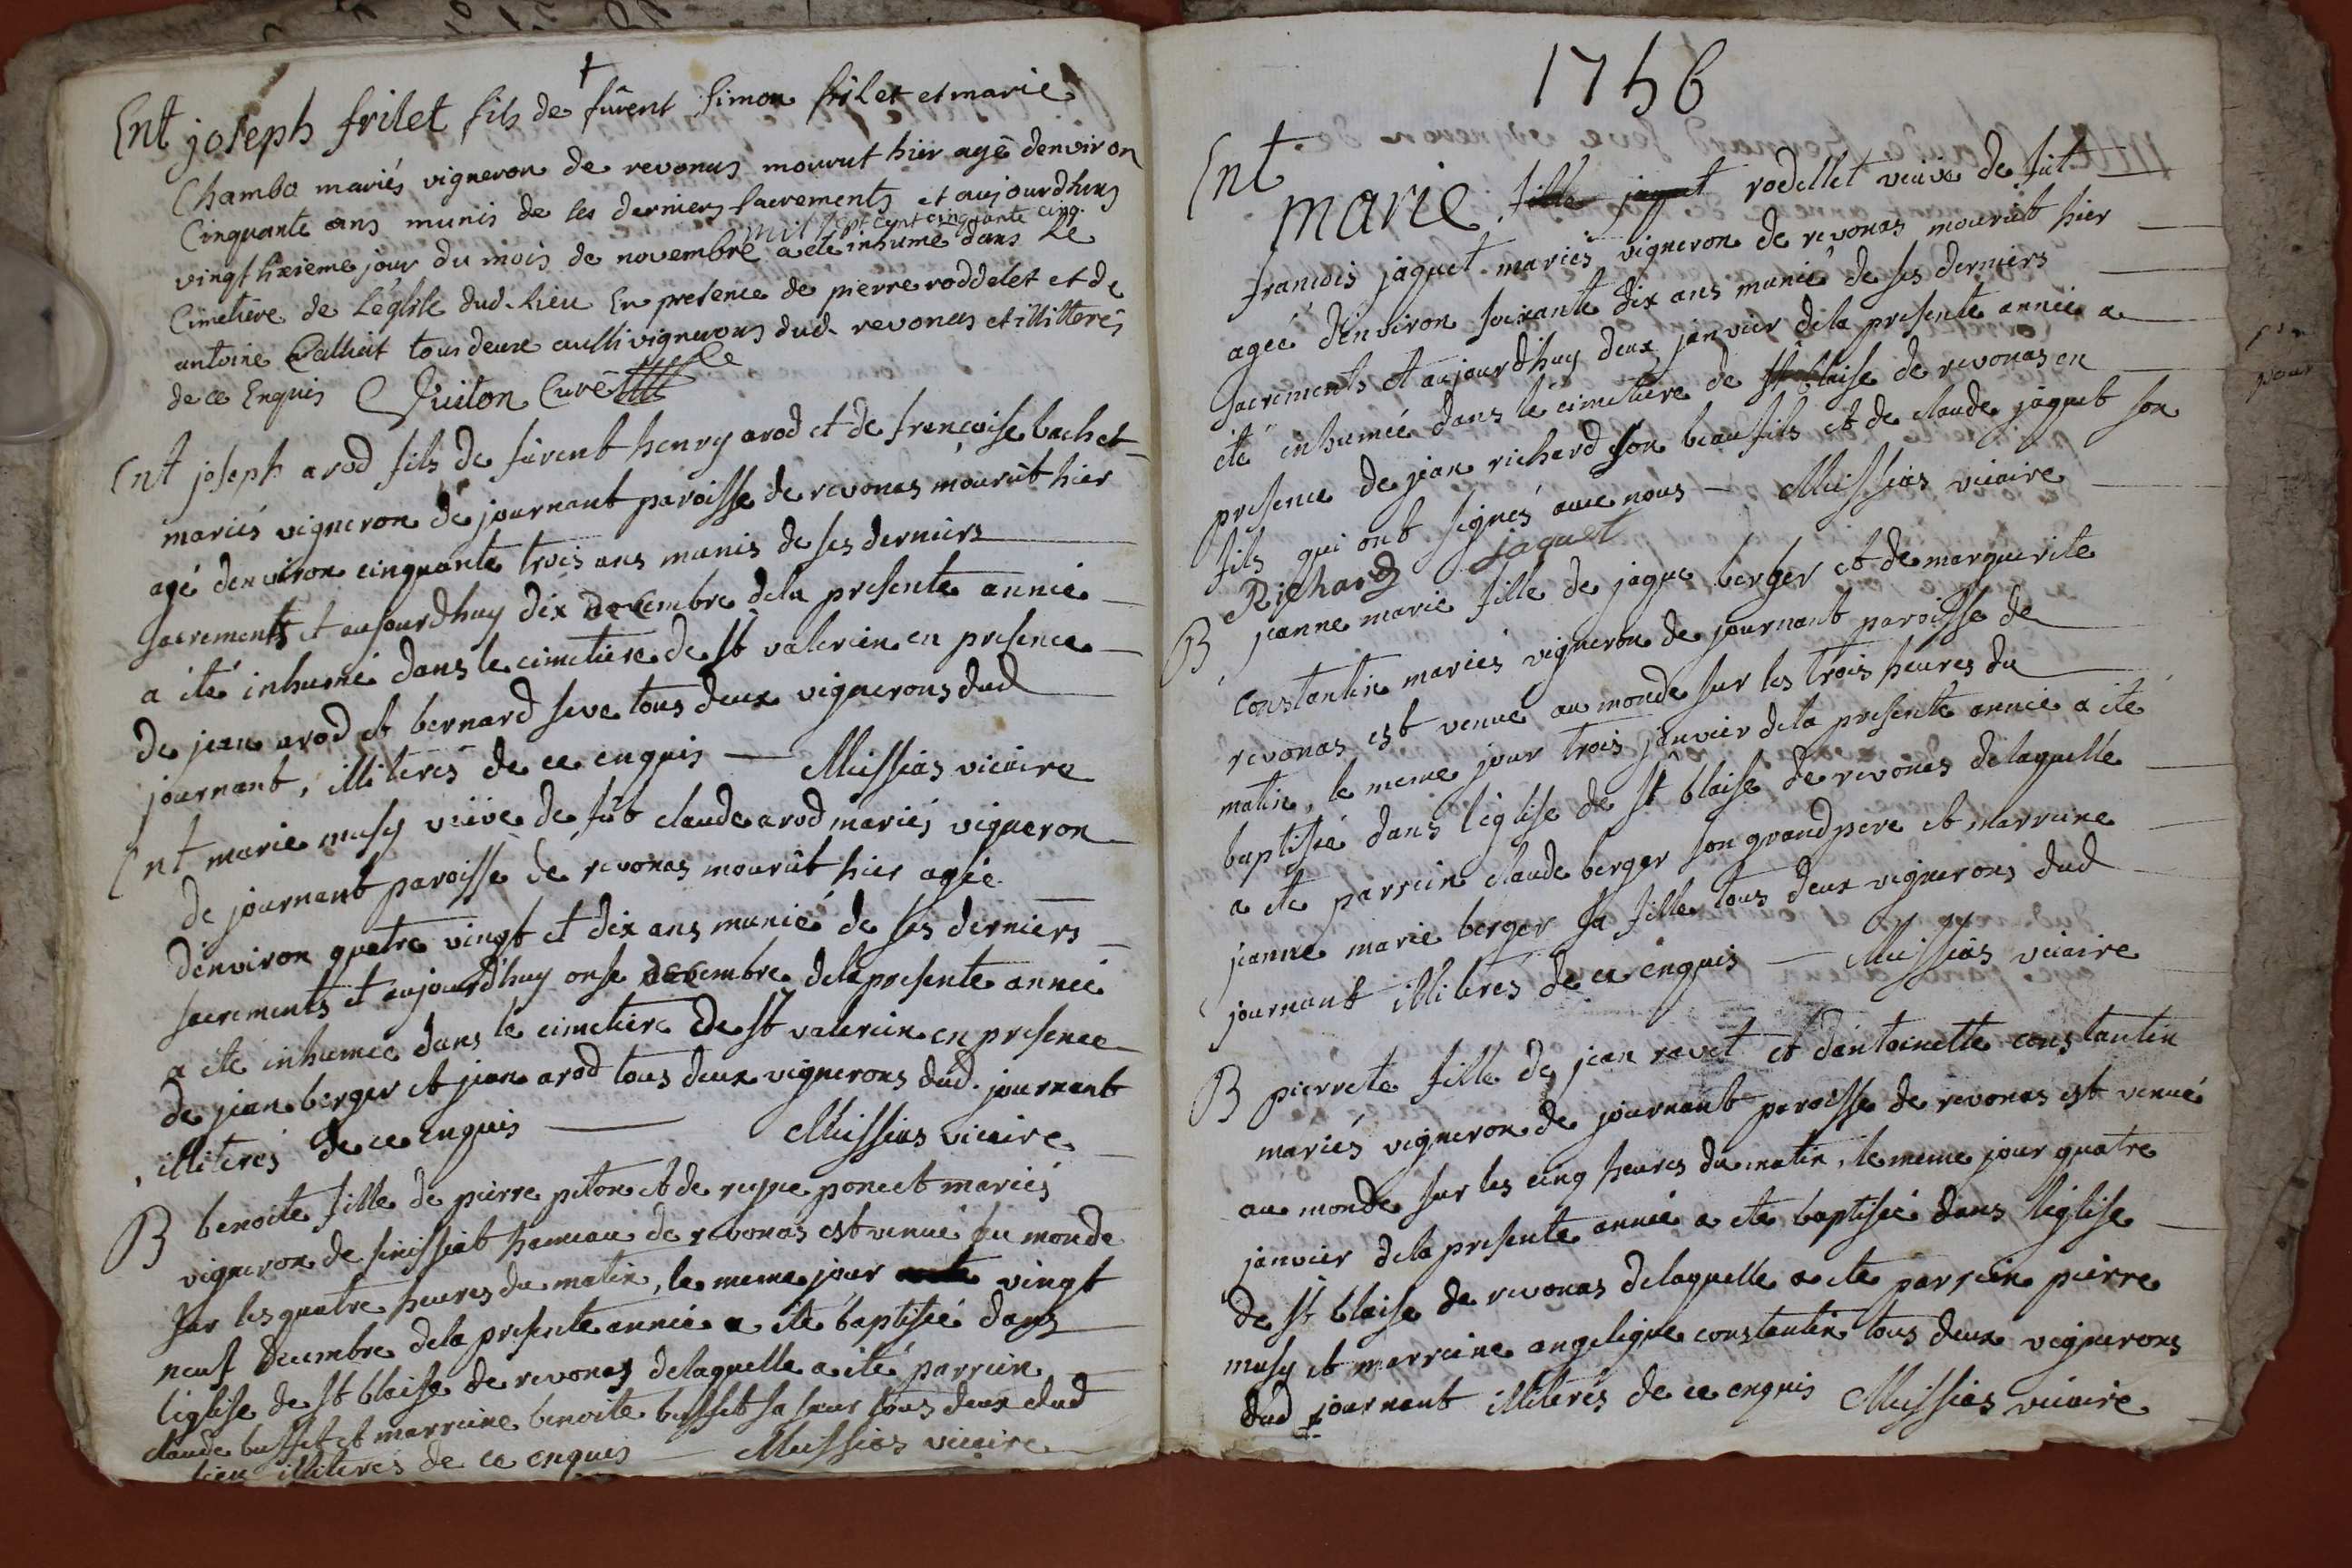 †
Ent joseph frilet fils de fûrent simon frilet et marie
Chambo mariés vigneron de revonas mourut hier agé denviron
Cinquante ans munis de ses derniers sacrements et aujourdhuy
mil sept cent cinquante cinq.
vingt sixieme jour du mois de novembre a été inhumé dans Le
Cimetiere de Léglise dud. Lieu En presence de pierre roddelet et de
antoine tous deux aussi vignerons dud. revonas et illitterés
de ce Enquis Quiton Curé
Ent joseph arod fils de fûrent henry arod et de françoise bachet
mariés vigneron de journant paroisse de revonas mourût hier
agé denviron cinquante trois ans munis de ses derniers
sacrements et aujourdhuy dix decembre dela presente année
a été inhumé dans le cimetiere de st valerien en presence
de jean arod et bernard seve tous deux vignerons dud
journant, illiterés de ce enquis — Missias vicaire
Ent marie musy veüve de fût claude arod mariés vigneron
de journant paroisse de revonas mourût hier agée
d'environ quatre vingt et dix ans munié de ses derniers
sacrements et aujourd'huy onse decembre dela presente année
a été inhumée dans le cimetiere de st valerien en presence
de jean berger et jean arod tous deux vignerons dud. journant
illiterés de ce enquis — Missias vicaire
B benoite fille de pierre piton et de reyne poncet mariés
vigneron de sinissiat hameau de revonas est venué au monde
sur les quatre heures du matin, le meme jour vingt
neuf decembre dela presente année a été baptisée dans
léglise de st blaise de revonas delaquelle a été parrein
claude buffet et marreine benoite buffet sa sœur tous deux dud
lieu illiterés de ce enquis — Missias vicaire
1756
Ent
marie fille jaquet rodellet veüve de fût
francois jaquet mariés vigneron de revonas mourût hier
agée d'environ soixante dix ans munié de ses derniers
sacrements et aujourd'huy deux janvier dela presente année a
été inhumée dans le cimetiere de st blaise de revonas en
presence de jean richard son beau fils et de claude jaquet son
fils qui ont signés avec nous — Missias vicaire
Richard jaquet
B jeanne marie fille de jaque berger et de marguerite
constantin mariés vigneron de journant paroisse de
revonas est venué au monde sur les trois heures du
matin, le meme jour trois janvier dela presente année a été
baptisée dans léglise de st blaise de revonas delaquelle
a été parrein claude berger son grandpere et marreine
jeanne marie berger sa fille tous deux vignerons dud
journant illiterés de ce enquis — Missias vicaire
B pierrete fille de jean ravet et dantoinette constantin
mariés vigneron de journant paroisse de revonas est venué
au monde sur les cinq heures du matin, le meme jour quatre
janvier dela presente année a été baptisée dans léglise
de st blaise de revonas delaquelle a été parrein pierre
musy et marreine angelique constantin tous deux vignerons
dud journant illiterés de ce enquis Missias vicaire